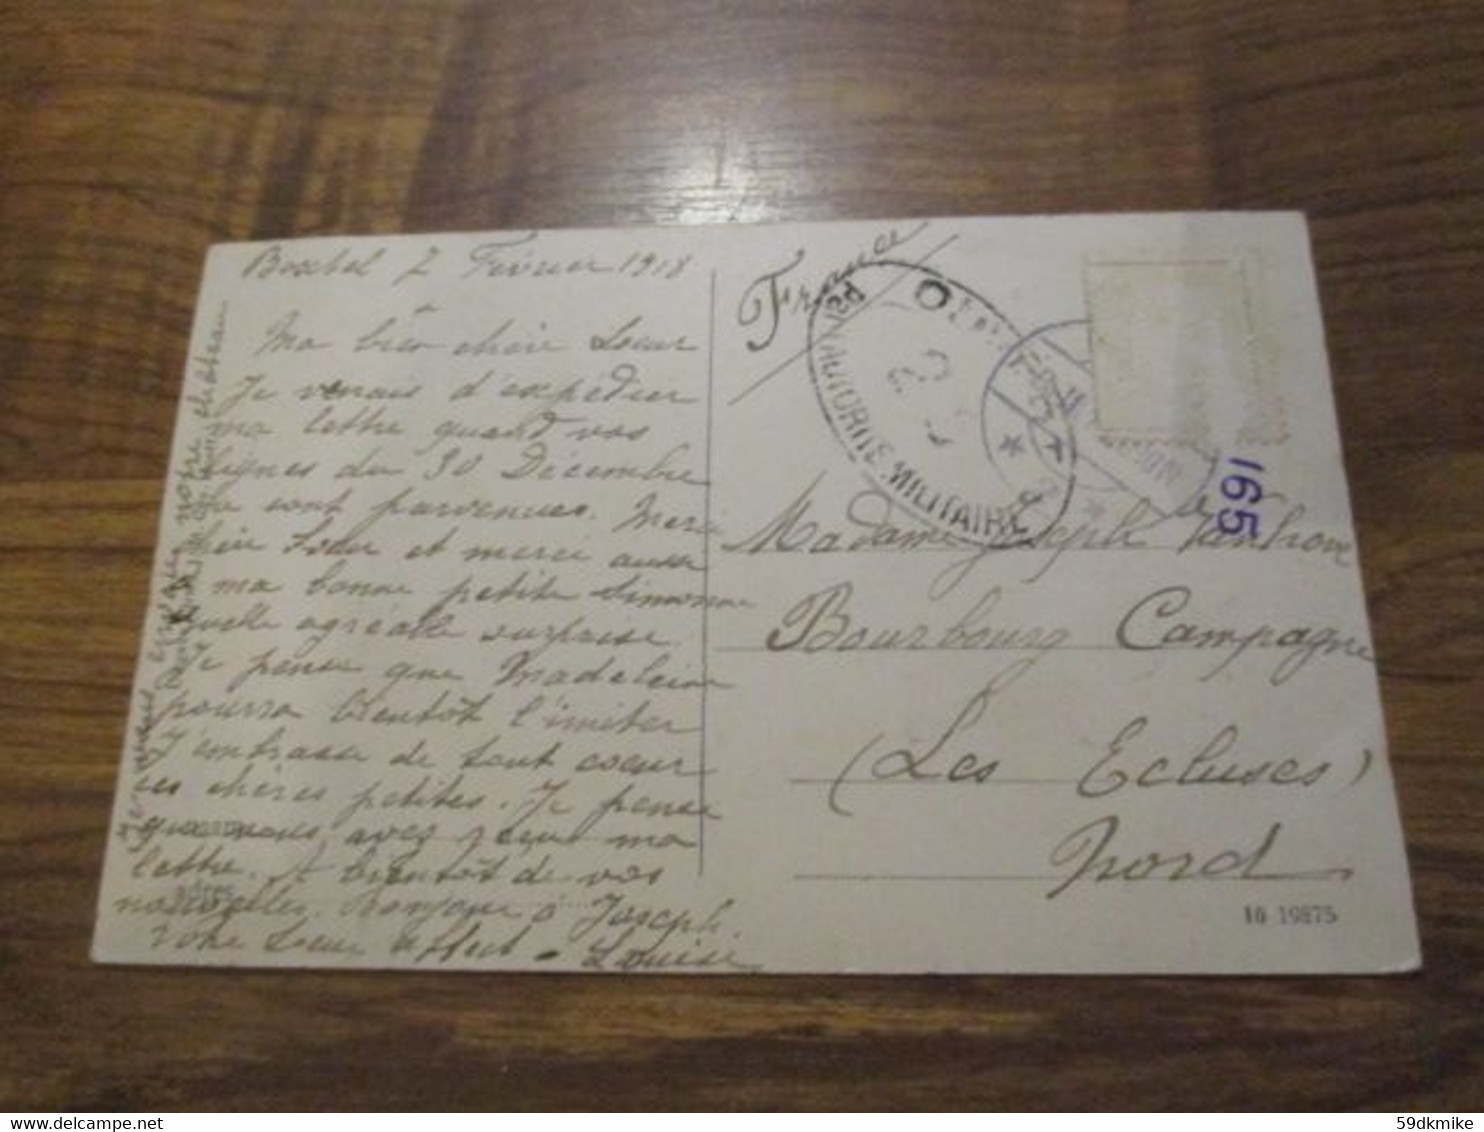 Boxtel 7 Février 1918
Ma bien chère Soeur
Je venais d'expédier
ma lettre quand vos
lignes du 30 Décembre
me sont parvenues. Merci
chère Soeur et merci aussi
ma bonne petite Simonne
quelle agréable surprise.
Je pense que Madeleine
pourra bientôt l'imiter
J'embrasse de tout coeur
ces chères petites. Je pense
que vous avez reçu ma
lettre. A bientôt de vos
nouvelles. Bonjour à Joseph.
Votre Soeur affect - Louise
notre château
France
OUVERT
PAR
AUTORITE MILITAIRE
165
Madame Joseph
Bourbourg Campagne
(Les Ecluses)
Nord
10 19875
59dkmike